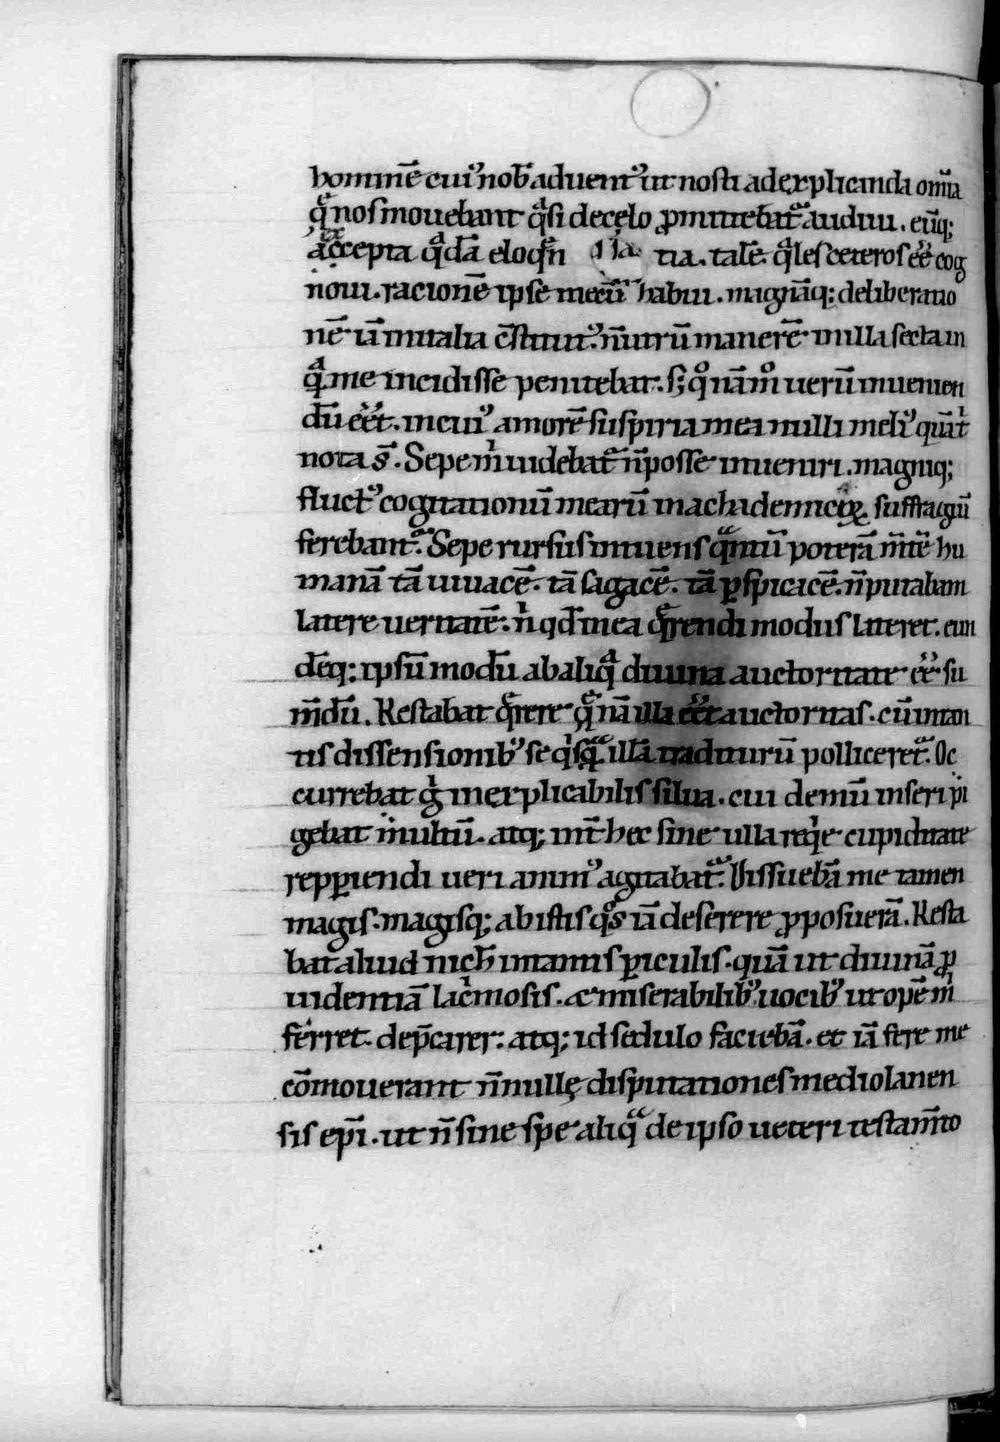 hominē cui᷒ nob̄ advent᷒ ut nosti ad explicanda om̄a
q̄ nos mouebant q̄si de cęlo ꝓmittebat᷑ audiui. eūq;
accepta q̄dā eloq̄n tia. talē q̄les ceteros eē cog
noui. racionē ipse mecū habui. magnāq; deliberatio
nē iā in italia c̄stitut᷒. n̄ utrū manerē in illa secta in
quā me incidisse penitebat. s; qͦnāmͦ uerū inuenien
dū eēt. in cui᷒ amorē suspiria mea nulli meli᷒ quā t̄
nota s̄. Sepe m̄ uidebat᷑ n̄ posse inueniri. magniq;
fluct᷒ cogitationū mearū in achademicoꝝ suffragiū
ferebant᷑. Sepe rursus intuens q̄ntū poterā m̄tē hu
manā tā uiuacē. tā sagacē. tā ꝑspicacē. n̄ putabam
latere ueritatē. n̄ qd̄ in ea q̄rendi modus lateret. eun
dēq; ipsū modū ab aliq̄ diuina auctoritate eē su
m̄dū. Restabat q̄rere q̄nā illa eēt auctoritas. cū in tan
tis dissensionib᷒ se q̄sq̄ illā traditurū polliceret᷑. Oc
currebat ḡ inexplicabilis silua. cui demū inseri pi
gebat multū. atq; int̄ hec sine ulla reqͥe cupiditate
repꝑiendi ueri anim᷒ agitabat᷑. Dissuebā me tamen
magis. magisq; ab istis qͦs iā deserere ꝓposuerā. Resta
bat aliud nich̄ in tantis ꝑiculis. quā ut diuinā ꝓ
uidentiā lac̄mosis. & miserabilib᷒ uocib᷒ ut opē m̄
ferret. dep̄carer. atq; id sedulo faciebā. et iā fere me
cōmouerant n̄nullę disputationes mediolanen
sis ep̄i. ut n̄ sine spe aliq̄ de ipso ueteri testam̄to